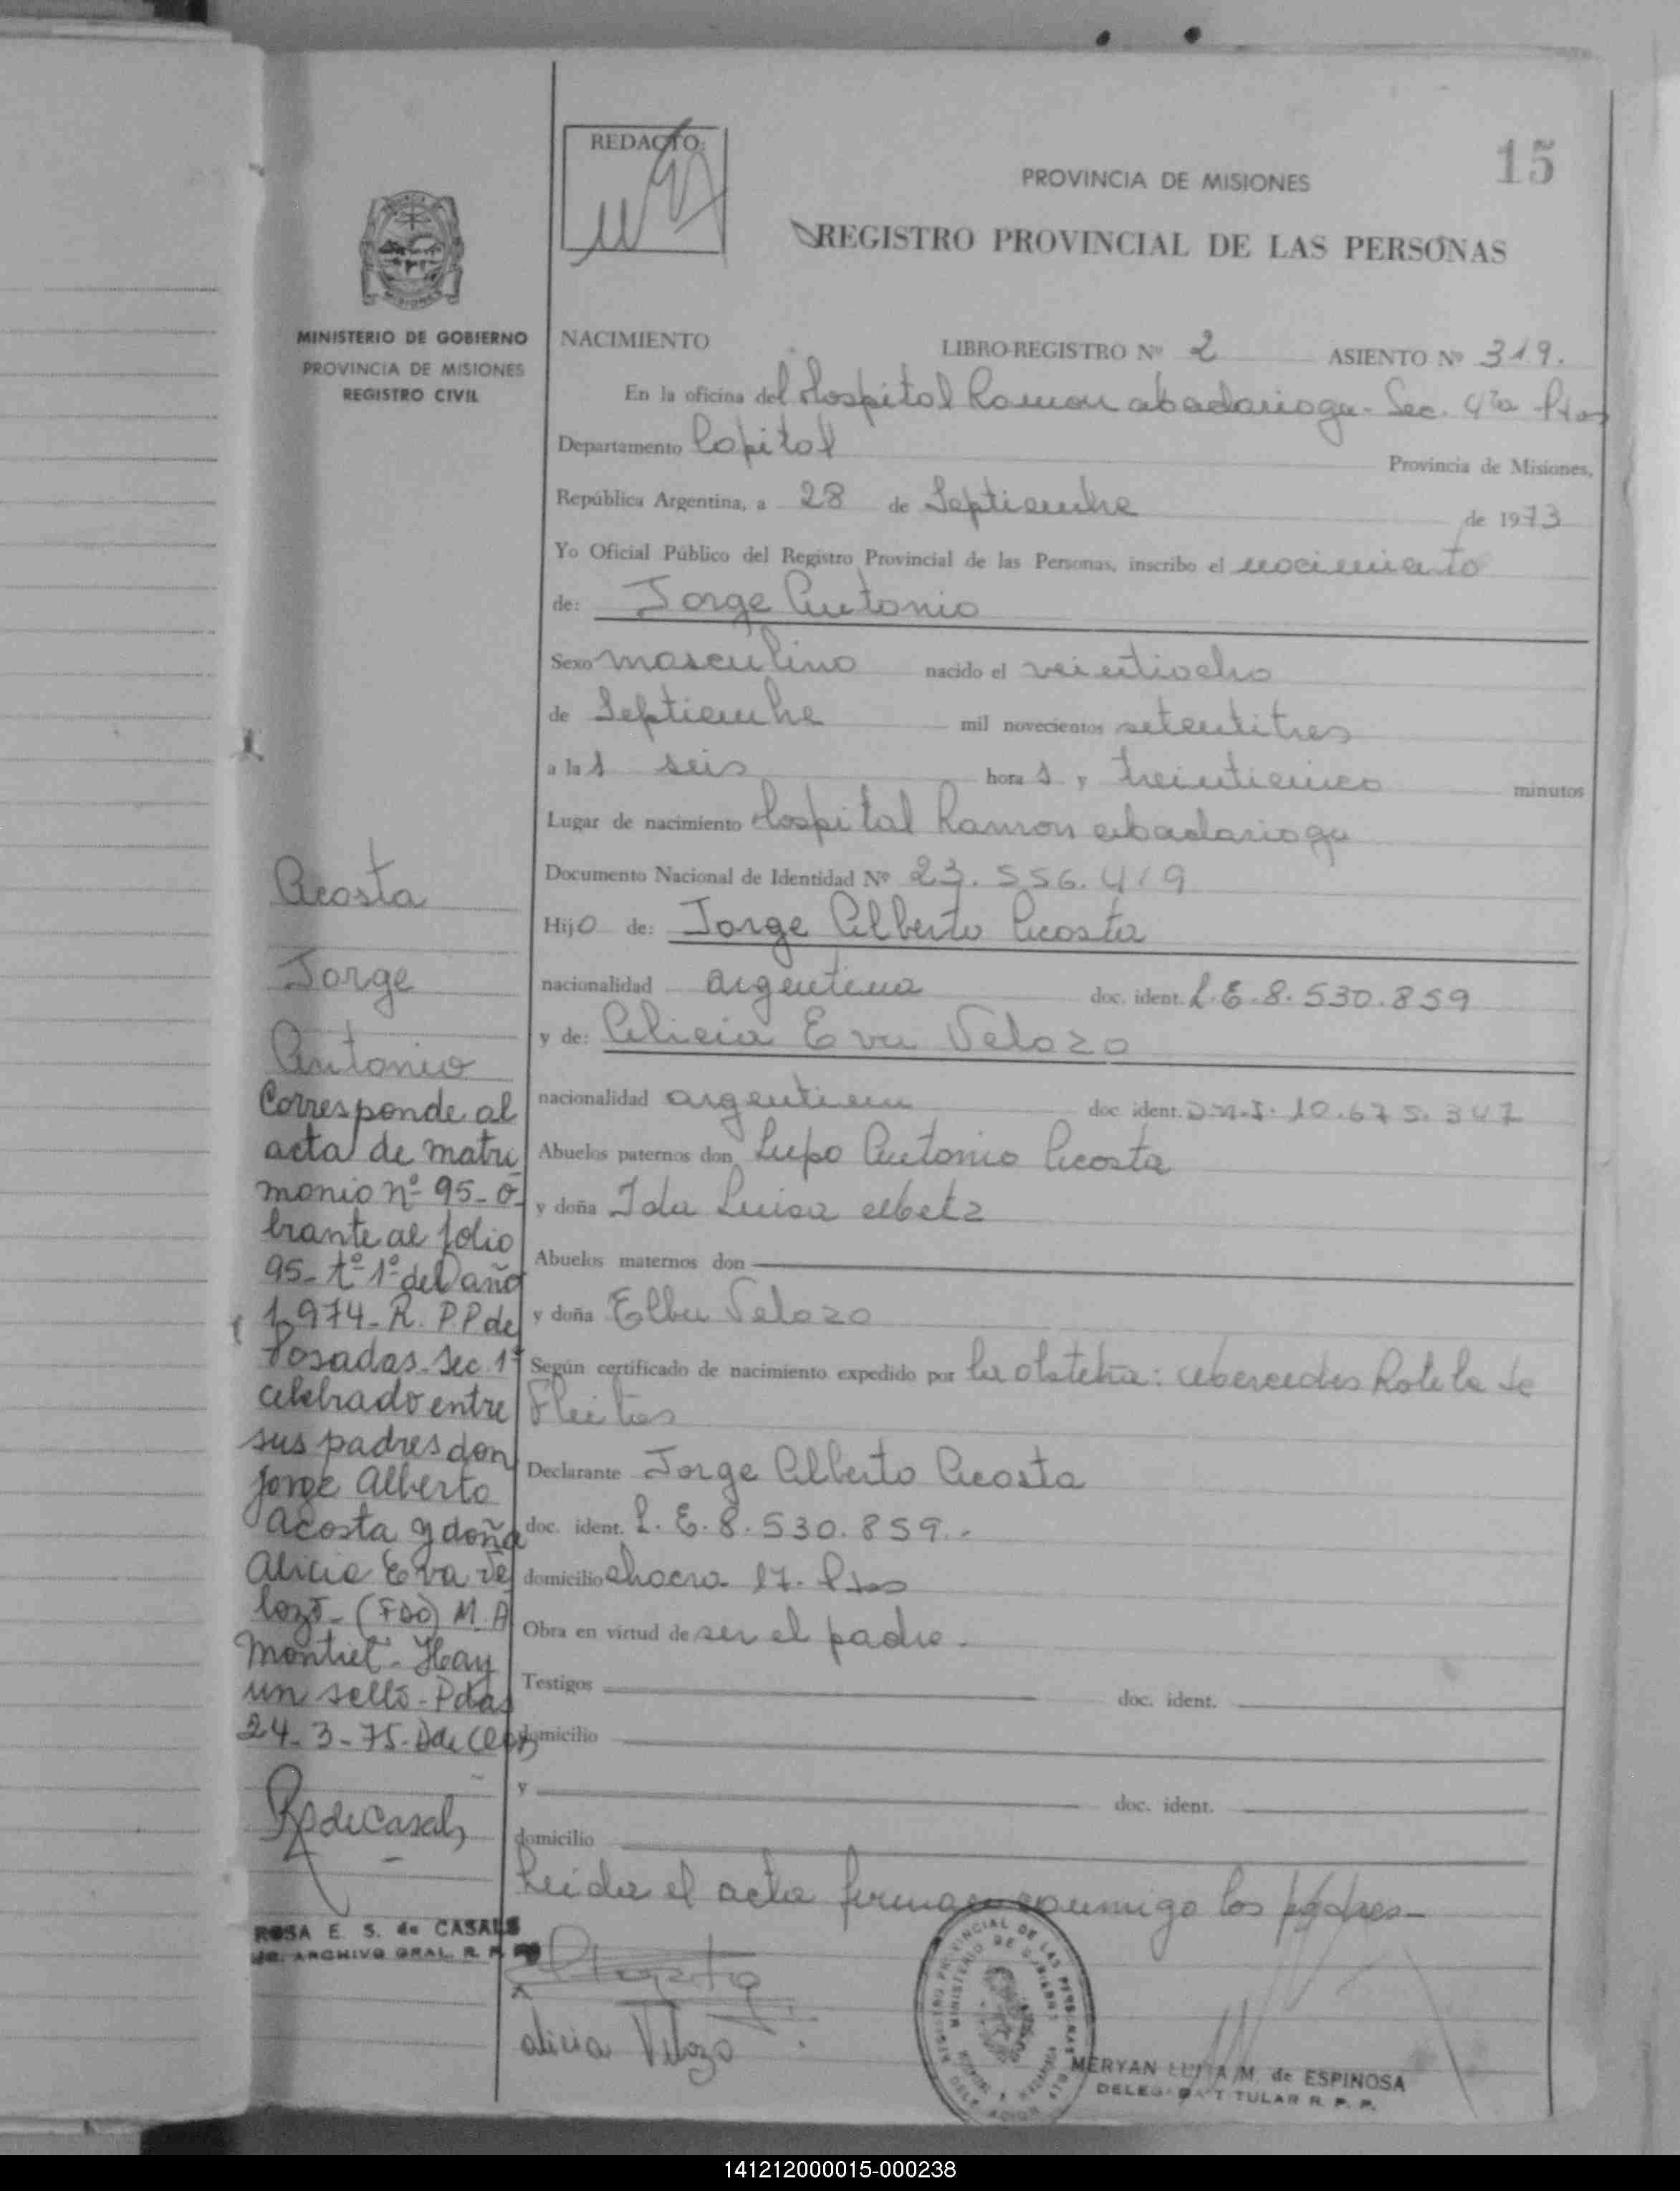 REDACTO:
15
PROVINCIA DE MISIONES
REGISTRO PROVINCIAL DE LAS PERSONAS
MINISTERIO DE GOBIERNO
PROVINCIA DE MISIONES
REGISTRO CIVIL
NACIMIENTO LIBRO-REGISTRO Nº 2 ASIENTO Nº 319.
En la oficina del Hospital Ramon Madariaga - Sec. 4ta Pdas
Departamento Capital Provincia de Misiones,
República Argentina, a 28 de Septiembre de 1973
Yo Oficial Público del Registro Provincial de las Personas, inscribo el nacimiento
de: Jorge Antonio
Sexo masculino nacido el veintiocho
de Septiembre mil novecientos setentitres
a las seis horas y treinticinco minutos
Lugar de nacimiento Hospital Ramon Madariaga
Documento Nacional de Identidad Nº 23.556.419
Hijo de: Jorge Alberto Acosta
nacionalidad argentina doc. ident. L.E. 8.530.859
y de: Alicia Eva Velozo
nacionalidad argentina doc. ident. D.N.I. 10.675.347
Abuelos paternos don Lupo Antonio Acosta
y doña Ida Luisa Metz
Abuelos maternos don
y doña Elba Velozo
Según certificado de nacimiento expedido por la obstetra: Mercedes Rotela de
Fleitas
Declarante Jorge Alberto Acosta
doc. ident. L.E. 8.530.859.-
domicilio chacra 17. Pdas
Obra en virtud de ser el padre.
Testigos doc. ident.
domicilio
y doc. ident.
domicilio
Leida el acta firman conmigo los padres-
Acosta
Jorge
Antonio
Corresponde al
acta de matri
monio nº 95- o
brante al folio
95- tº 1º del año
1.974- R. P.P de
Posadas- Sec. 1ª
celebrado entre
sus padres don
Jorge Alberto
Acosta y doña
Alicia Eva Ve
lozo- (FDO) M. A
Montiel- Hay
un sello- Pdas
24-3-75-
RdeCasals
ROSA E. S. de CASALS
ARCHIVO GRAL. R. P.
alicia Velozo
REGISTRO PROVINCIAL DE LAS PERSONAS
MINISTERIO DE GOBIERNO
MERYAN LUISA M. de ESPINOSA
DELEGADA TITULAR R. P. P.
141212000015-000238